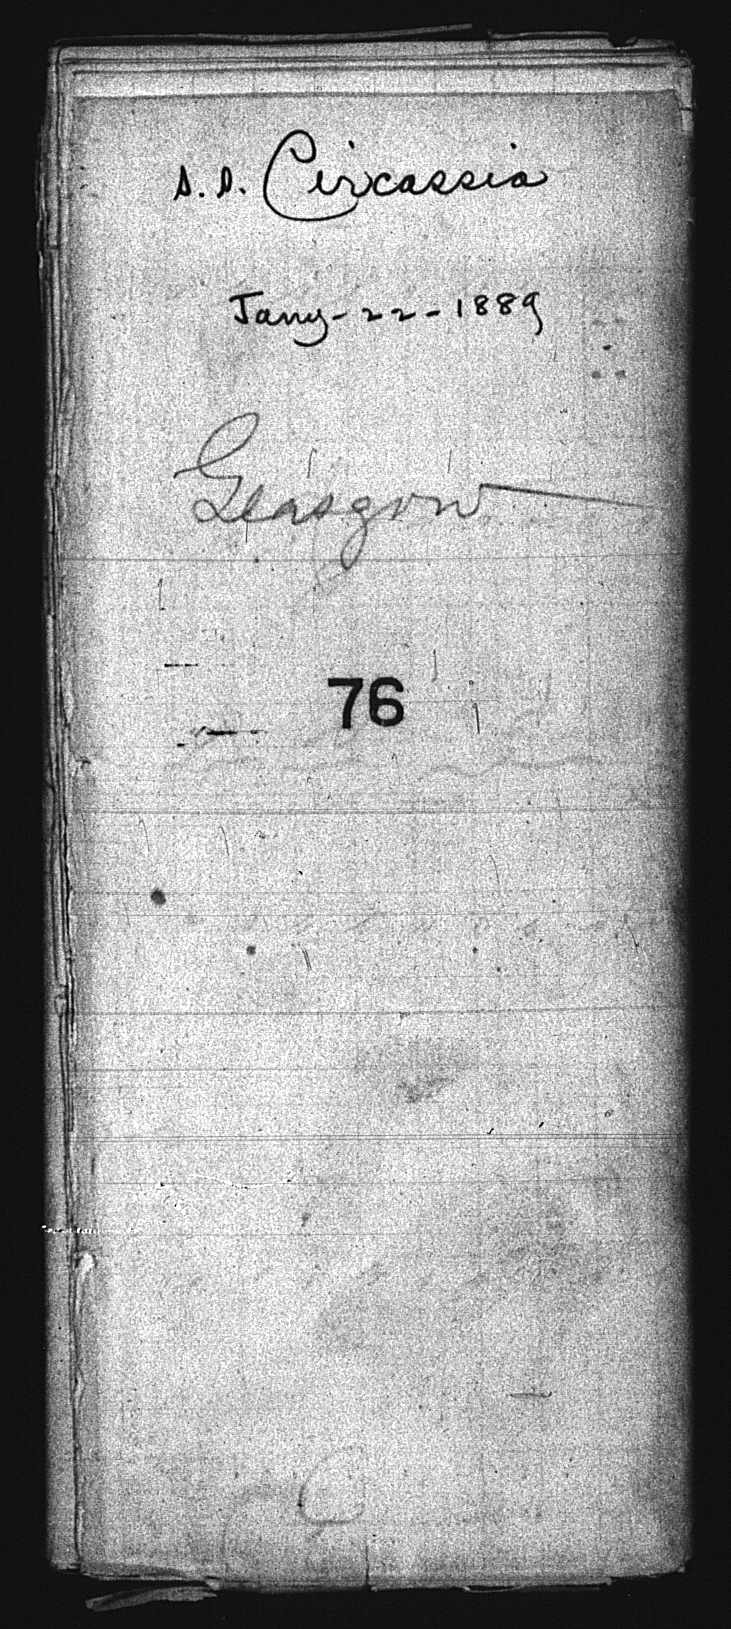 s.s. Circassia
Jany-22-1889
Glasgow
76